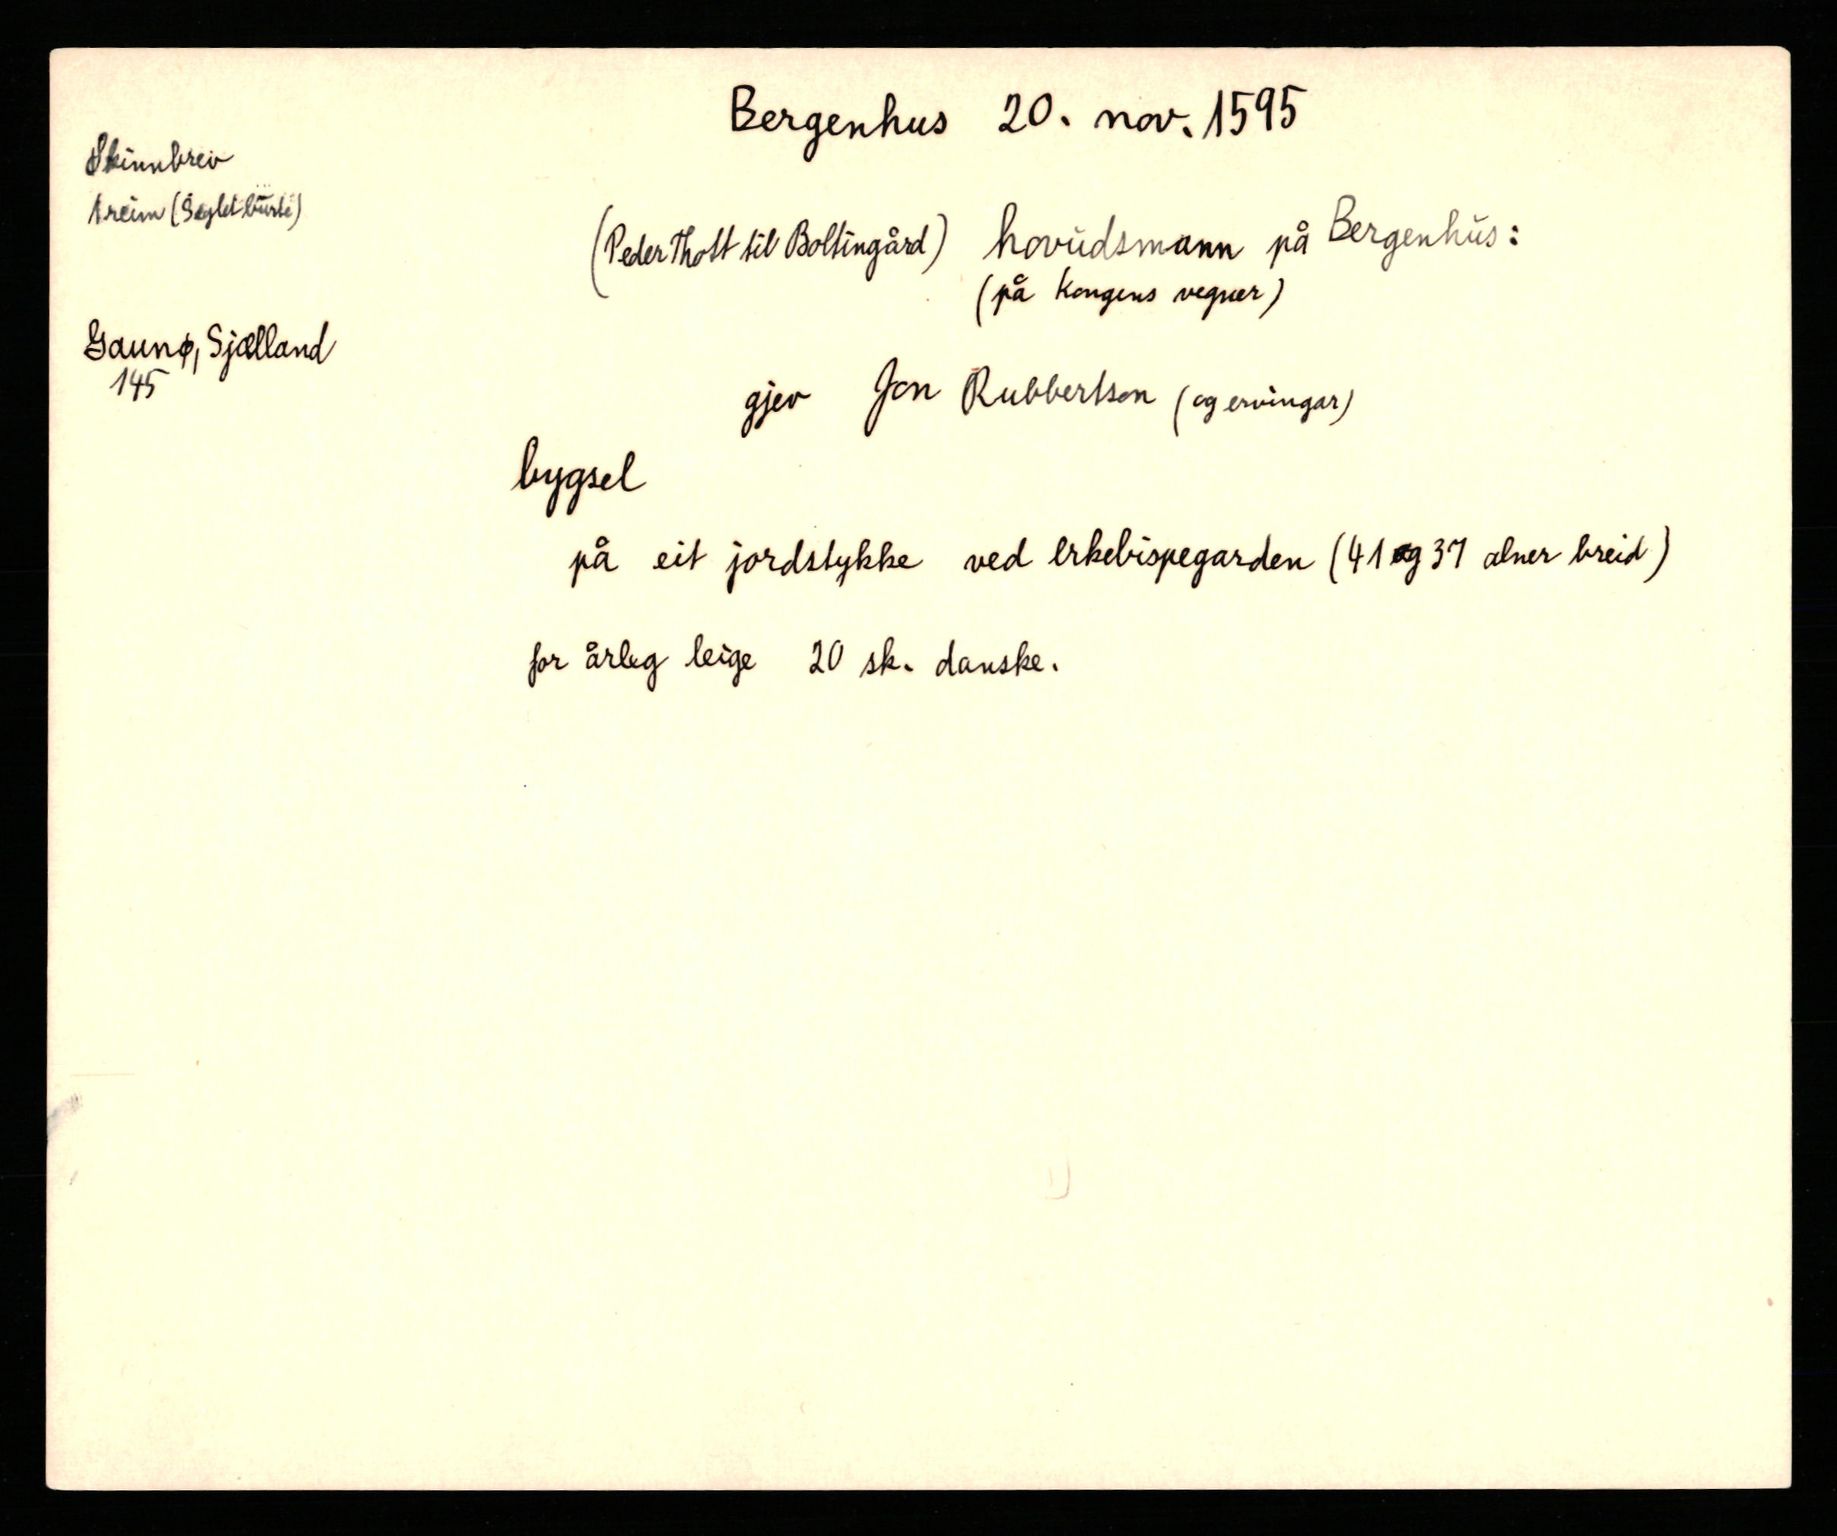 Bergenhus 20. nov. 1595
Skinnbrev
1 reim (Seglet burte)
(Peder Thott til Boltingård) hovudsmann på Bergenhus:
(på Kongens vegner)
Gaunø, Sjælland
145
gjev Jon Rubbertson (og ervingar)
bygsel
på eit jordstykke ved Erkebispegarden (41 og 37 alner breid)
for årleg leige 20 sk. danske.